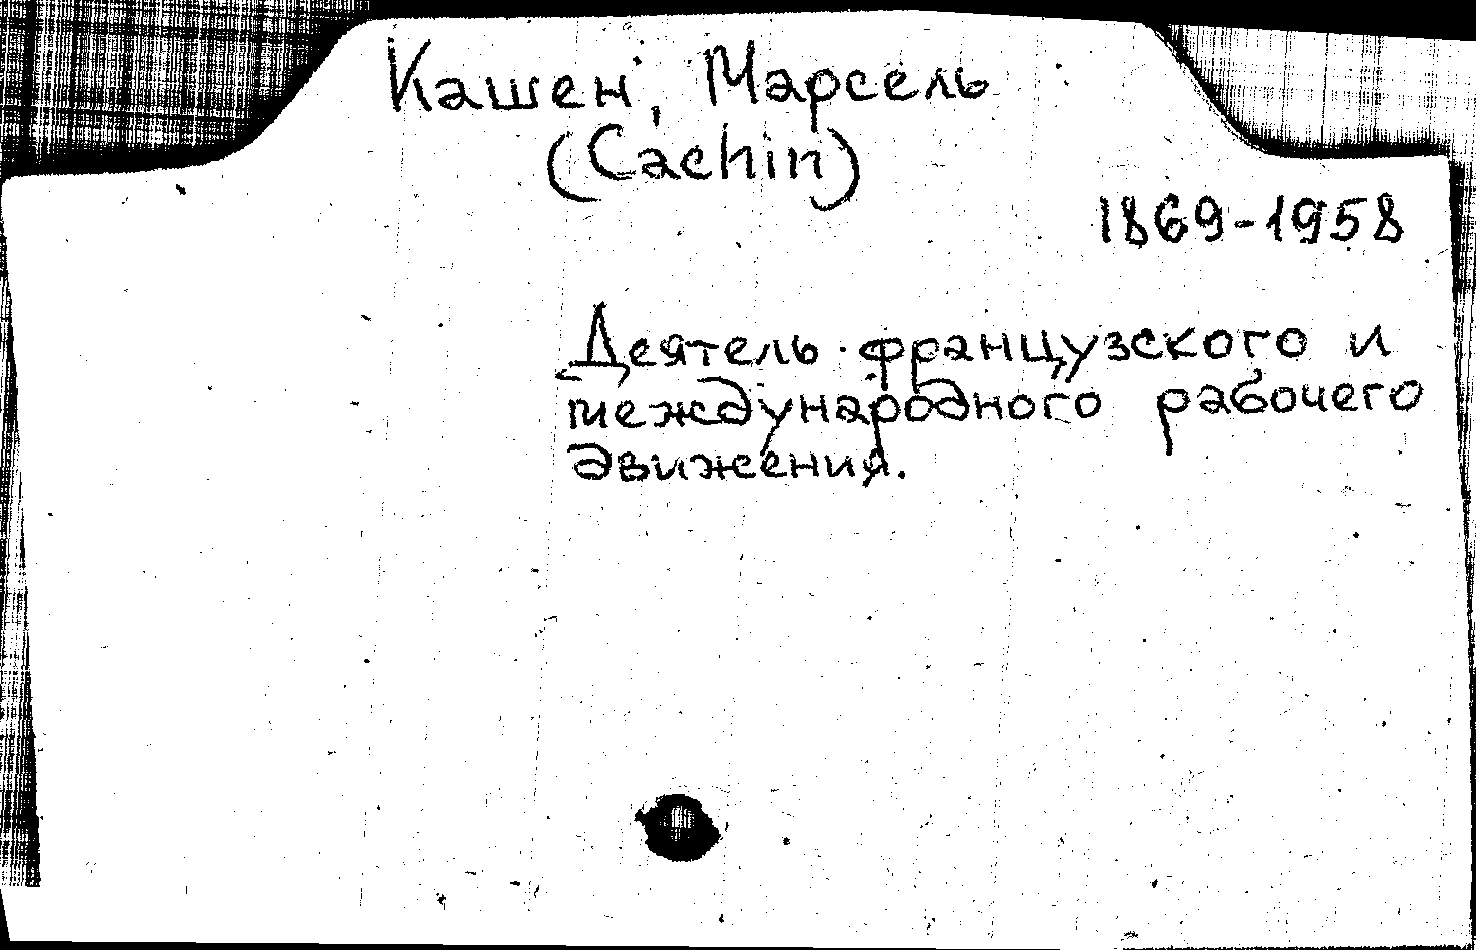 Кашен, Марсель
(Cachin)
1869-1958
Деятель французского и
международного рабочего
движения.